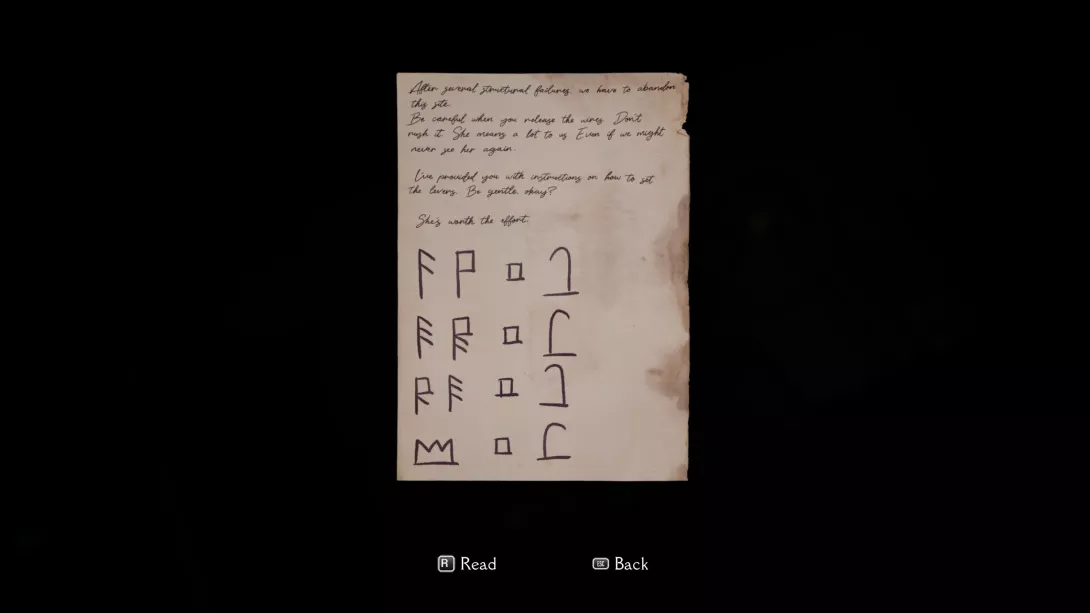 After several structural failures, we have to abandon
this site.
Be careful when you release the wires. Don't
rush it. She means a lot to us. Even if we might
never see her again.
I've provided you with instructions on how to set
the levers. Be gentle, okay?
She's worth the effort.
R Read
ESC Back